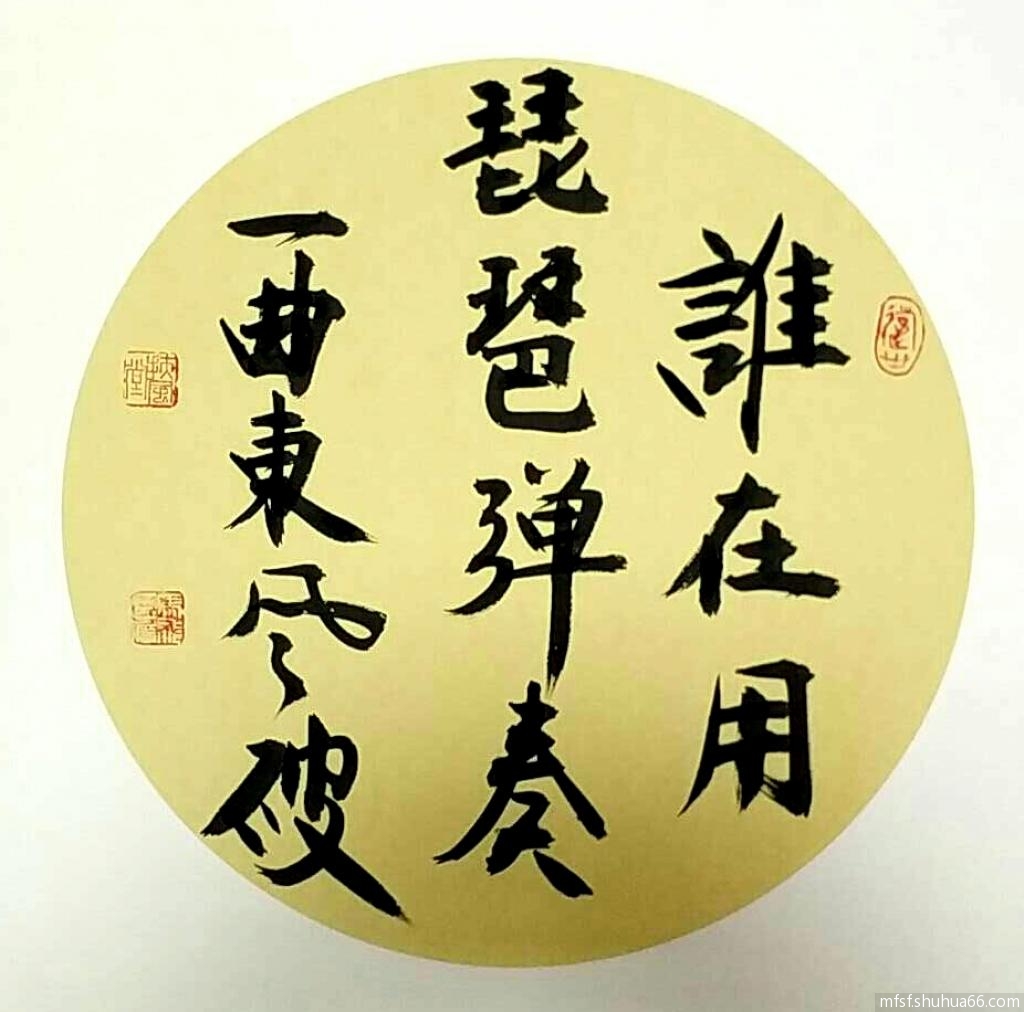 誰在用
琵琶弹奏
一曲東风破
mfsf.shuhua66.com